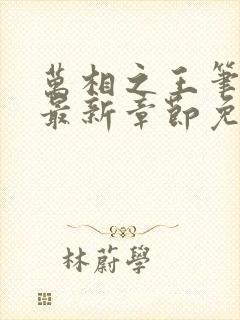 萬相之王筆
最新章節免
林蔚學